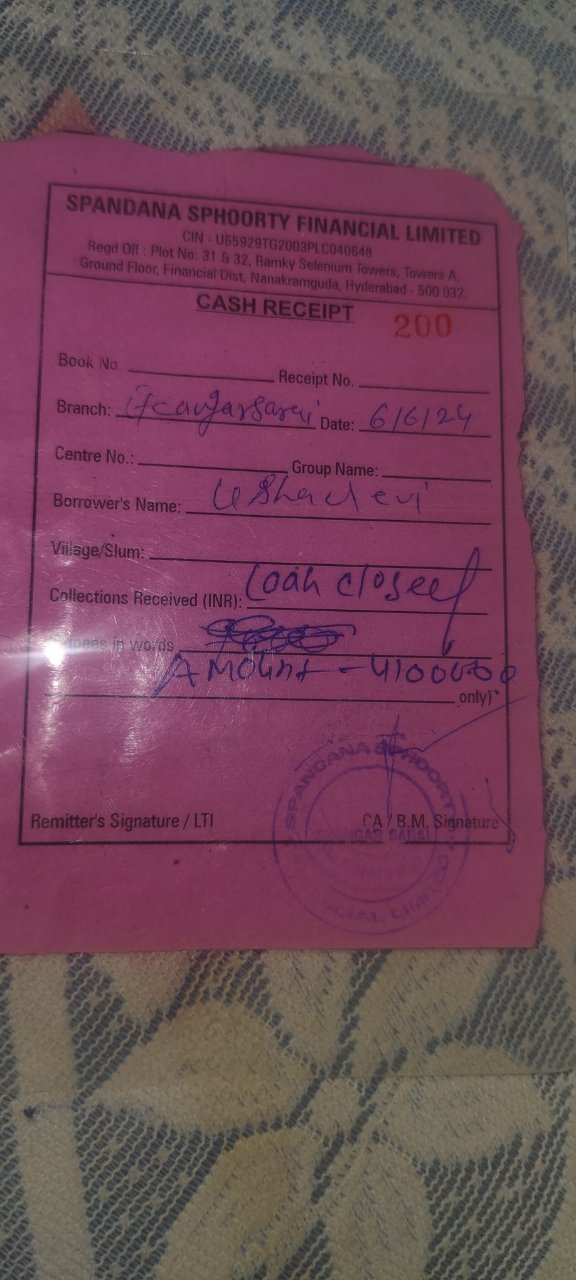 SPANDANA SPHOORTY FINANCIAL LIMITED
CIN - U65929TG2003PLC040648
Regd Off : Plot No: 31 & 32, Ramky Selenium Towers, Towers A,
Ground Floor, Financial Dist, Nanakramguda, Hyderabad - 500 032.
CASH RECEIPT
200
Book No. Receipt No.
Branch: Date: 6/6/24
Centre No.: Group Name:
Borrower's Name: Usha devi
Village/Slum:
Collections Received (INR): Loan closed
in words
Amount -
only)
SPANDANA SPHOORTY
Remitter's Signature / LTI CA / B.M. Signature
LIMITED